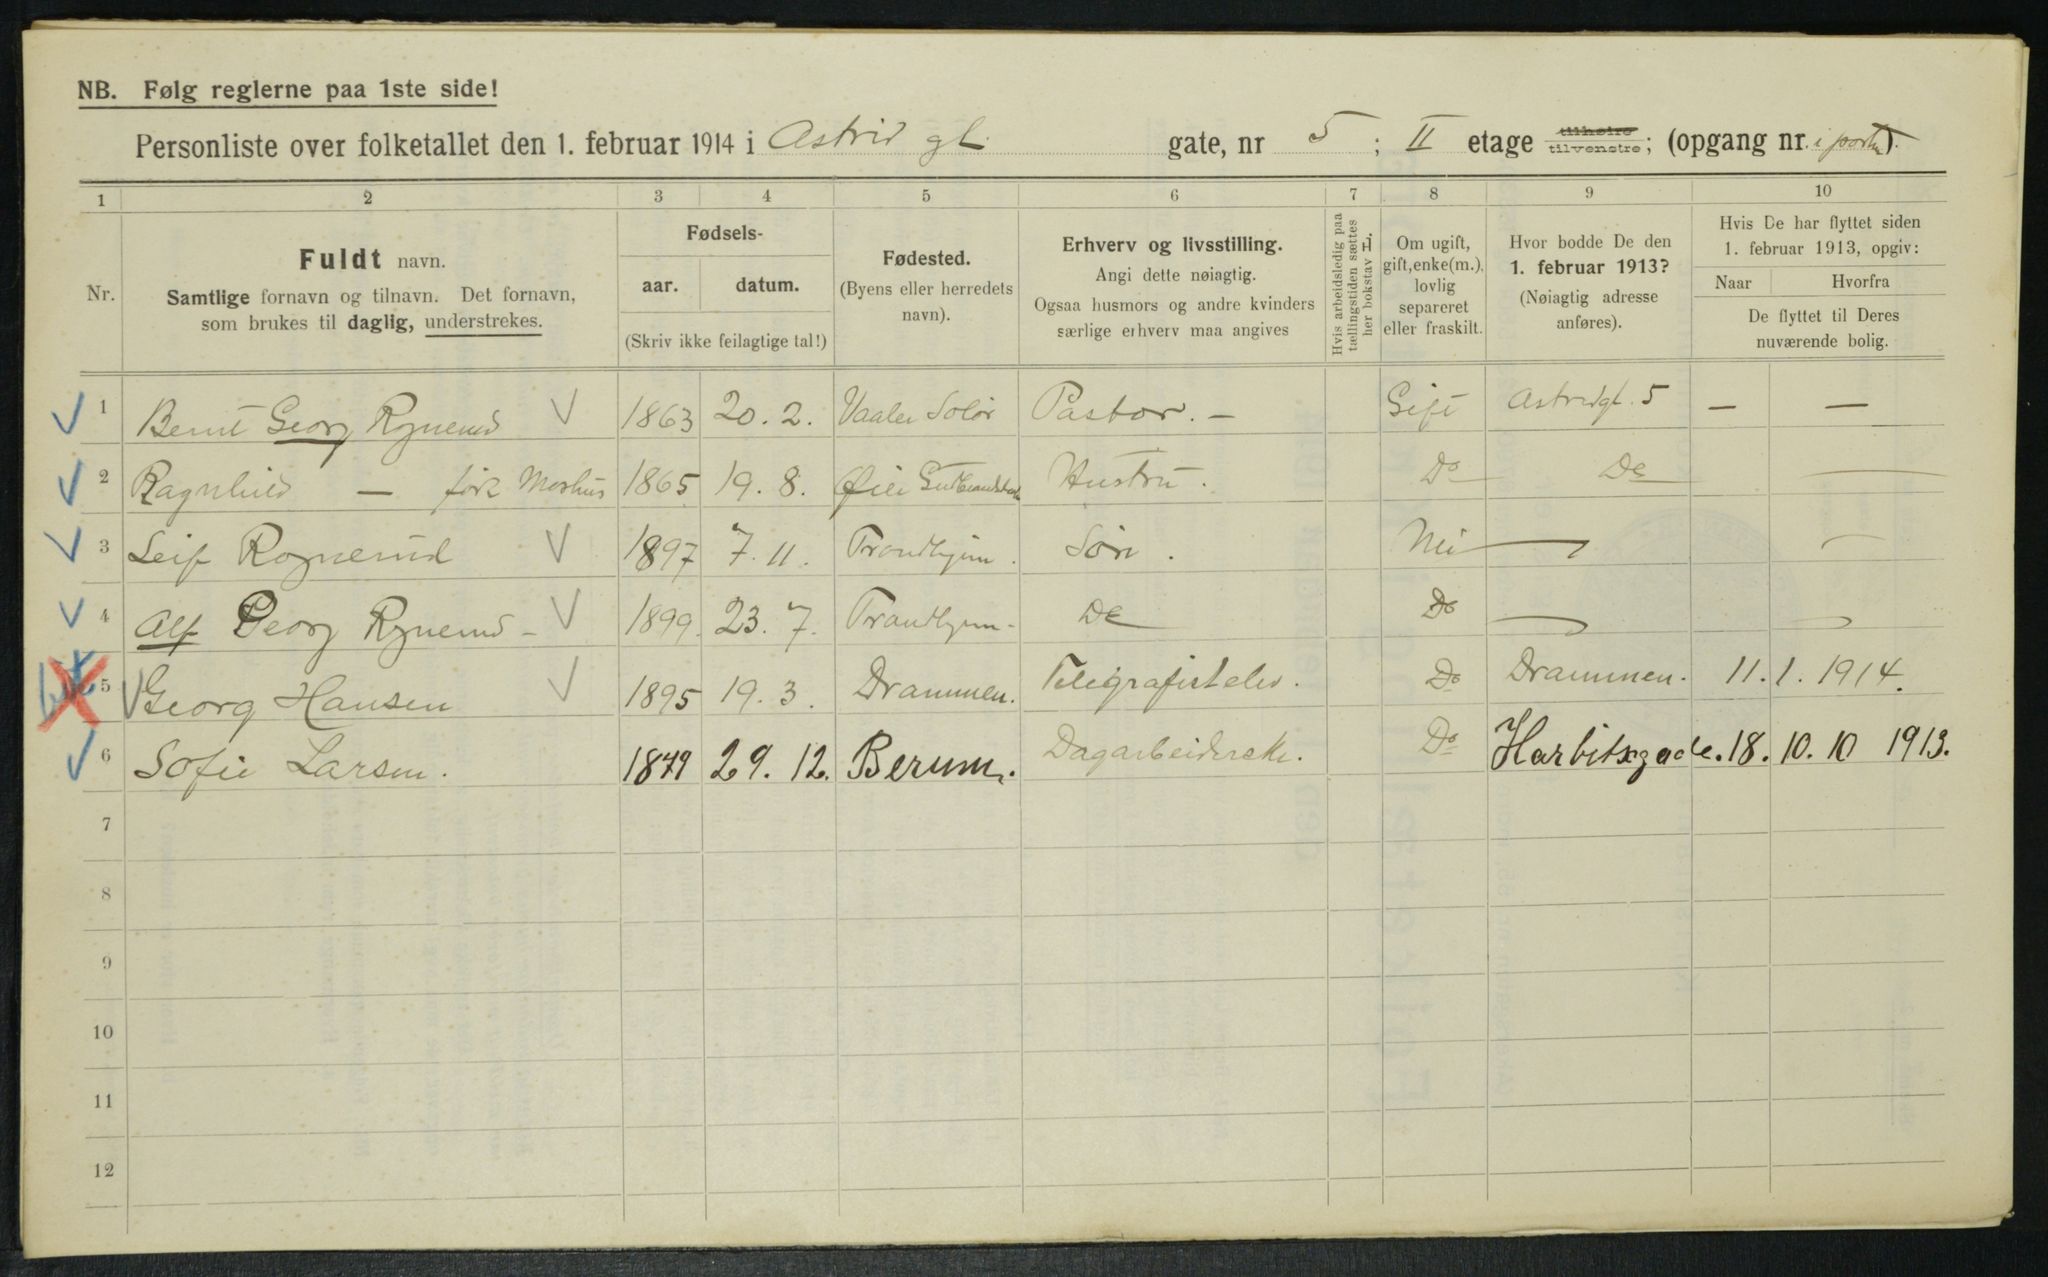 NB. Følg reglerne paa 1ste side!
Personliste over folketallet den 1. februar 1914 i Astrid gt. gate, nr 5; II etage tilhøire tilvenstre; (opgang nr. i porten).
1 2 3 4 5 6 7 8 9 10
Nr.
Fuldt navn.
Samtlige fornavn og tilnavn. Det fornavn,
som brukes til daglig, understrekes.
Fødsels-
aar. datum.
(Skriv ikke feilagtige tal!)
Fødested.
(Byens eller herredets
navn).
Erhverv og livsstilling.
Angi dette nøiagtig.
Ogsaa husmors og andre kvinders
særlige erhverv maa angives
Hvis arbeidsledig paa
tællingstiden sættes
her bokstav L.
Om ugift,
gift, enke(m.),
lovlig
separeret
eller fraskilt.
Hvor bodde De den
1. februar 1913?
(Nøiagtig adresse
anføres).
Hvis De har flyttet siden
1. februar 1913, opgiv:
Naar Hvorfra
De flyttet til Deres
nuværende bolig.
1 Bernt Georg Rognerud 1863 20. 2. Vaaler Solør Pastor. — Gift Astridgt. 5 — —
2 Ragnhild — født Moshus 1865 19. 8. Øier Gudbrandsdal Hustru. Do Do —
3 Leif Rognerud 1897 7. 11. Trondhjem. Søn. Nei — —
4 Alf Georg Rognerud - 1899. 23. 7. Trondhjem. Do Do — —
5 Georg Hansen 1895 19. 3. Drammen. Telegrafistelev. Do Drammen. 11. 1. 1914.
6 Sofie Larsen. 1879 29. 12. Berum. Dagarbeiderske. Do Harbitzgade. 18. 10. 10 1913.
7
8
9
10
11
12